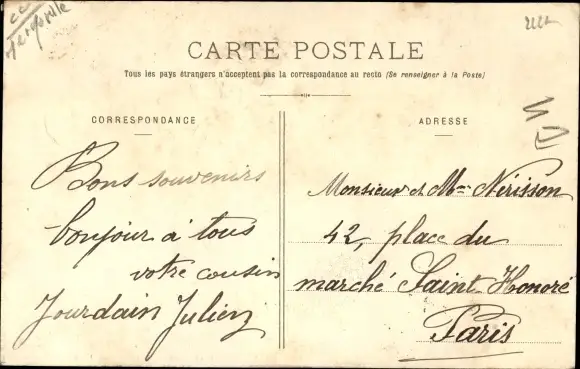 CARTE POSTALE
Tous les pays étrangers n'acceptent pas la correspondance au recto (Se renseigner à la Poste)
CORRESPONDANCE
ADRESSE
Bons souvenirs
bonjour à tous
votre cousin
Jourdain Julien
Monsieur et Mme Nérisson
42, place du
marché Saint-Honoré
Paris